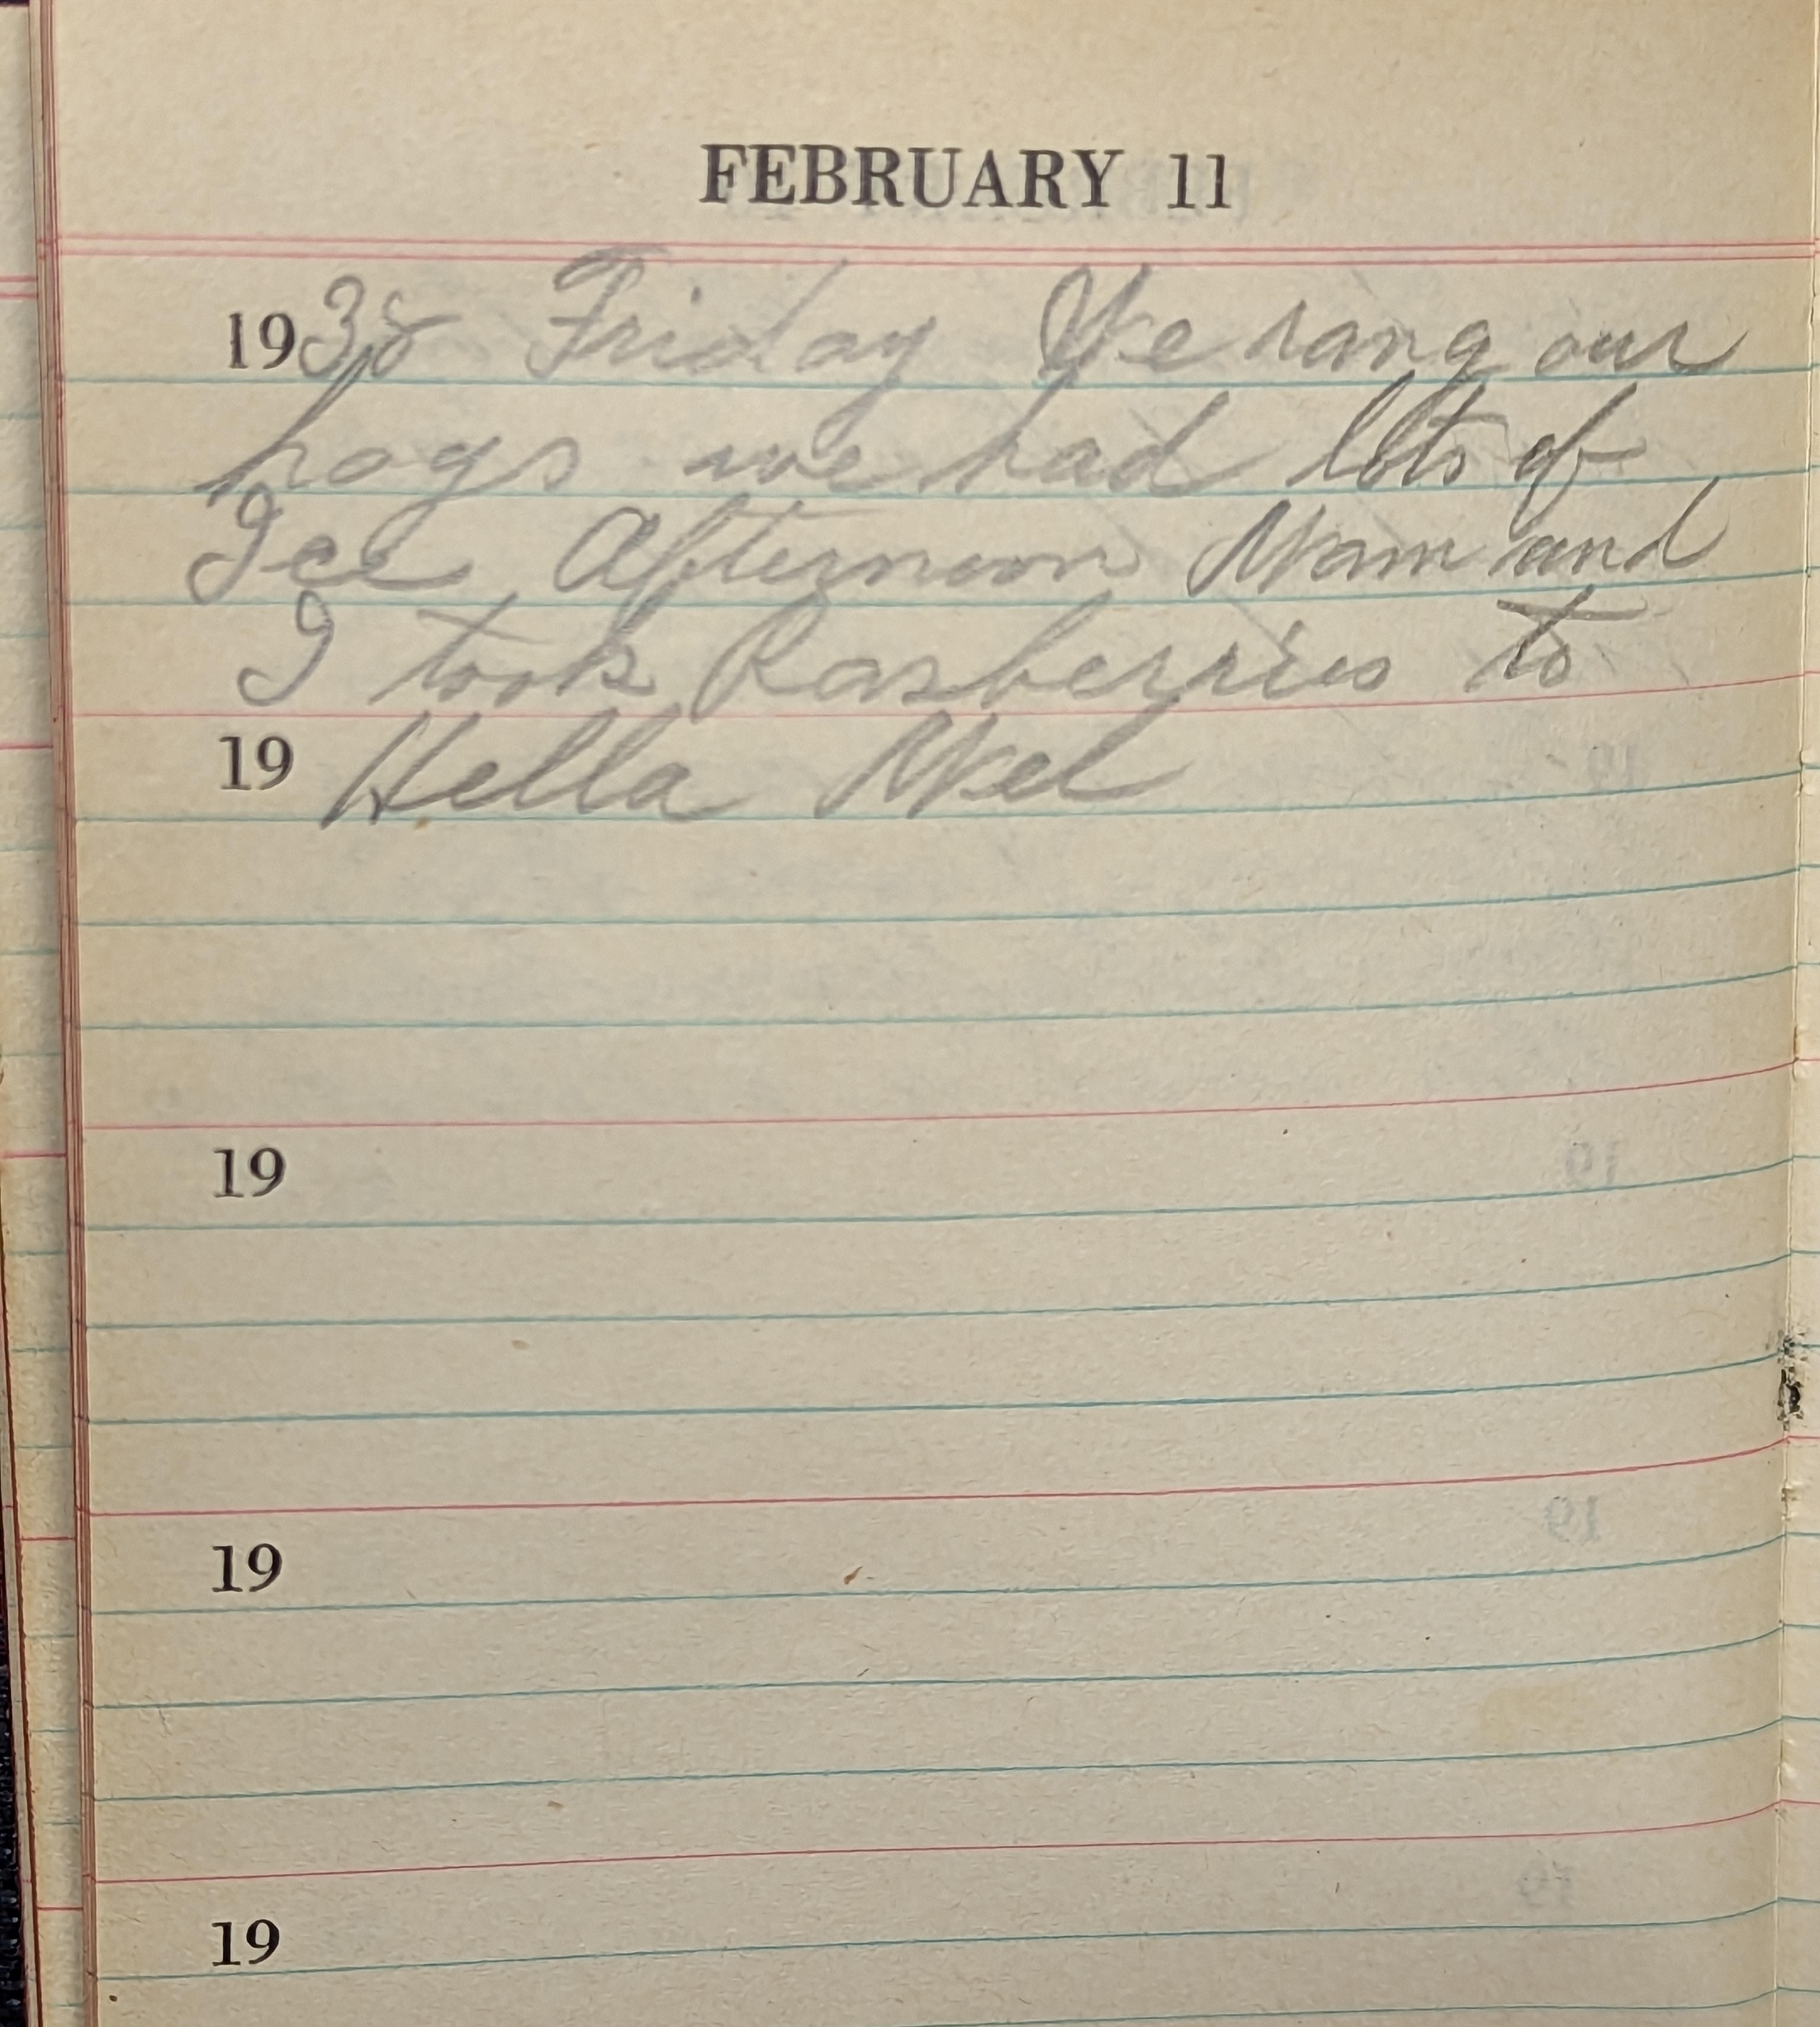 FEBRUARY 11
1938 Friday We rang our
hogs we had lots of
Ice Afternoon Mam and
I took Rasberries to
19 Hella Mel
19
19
19